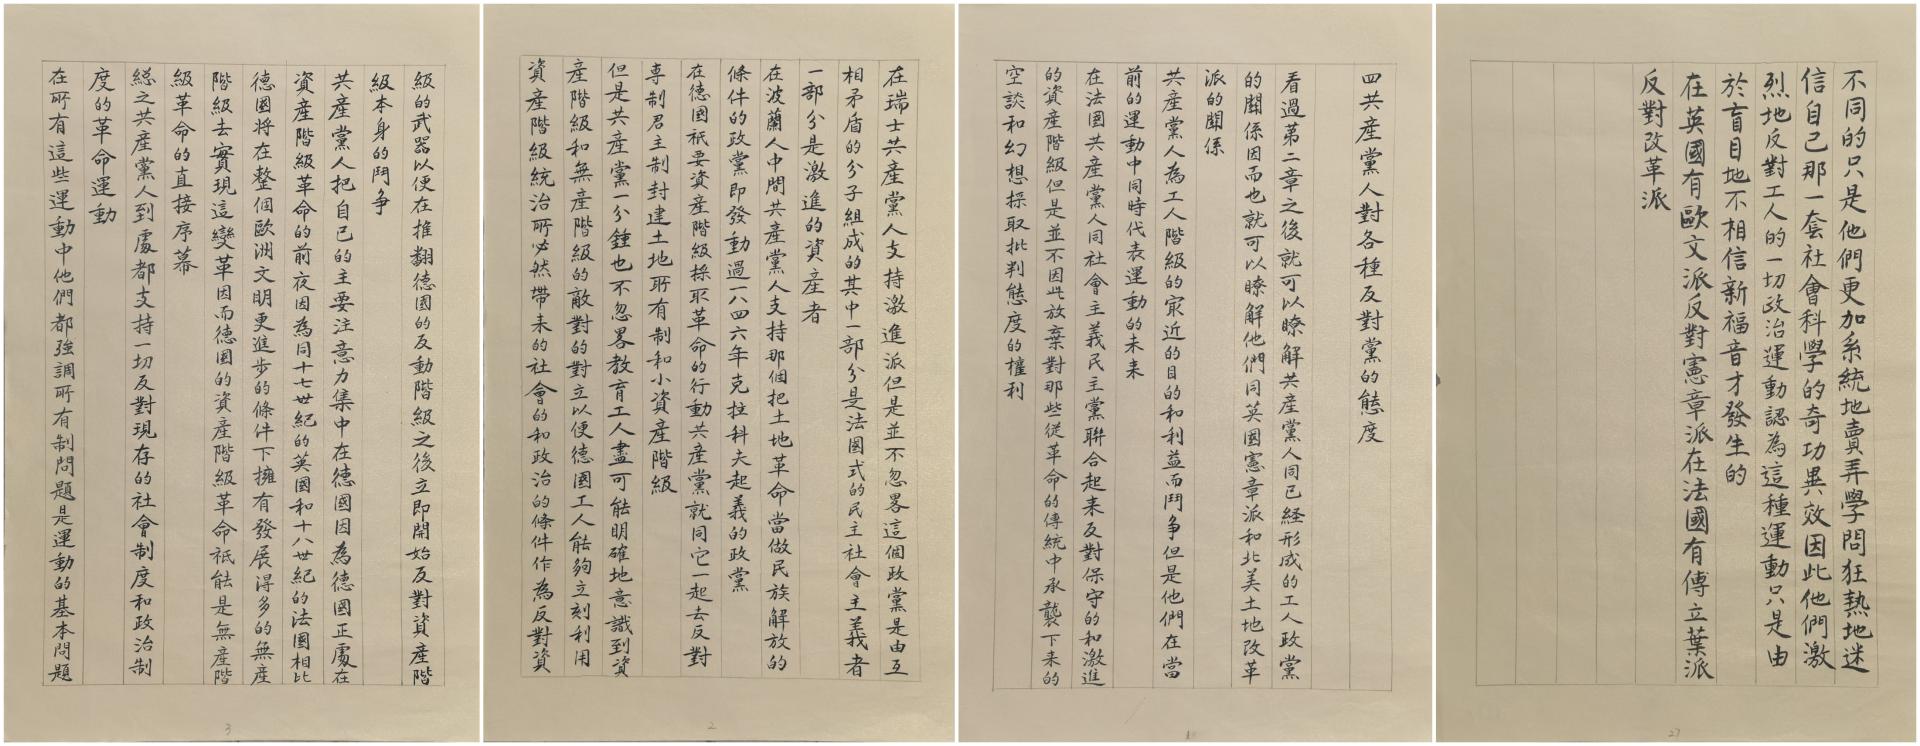 不同的只是他們更加系統地賣弄學問狂熱地迷
信自己那一套社會科學的奇功異效因此他們激
烈地反對工人的一切政治運動認為這種運動只是由
於盲目地不相信新福音才發生的
在英國有歐文派反對憲章派在法國有傅立葉派
反對改革派
27
四共產黨人對各種反對黨的態度
看過第二章之後就可以瞭解共產黨人同已經形成的工人政黨
的關係因而也就可以瞭解他們同英國憲章派和北美土地改革
派的關係
共產黨人為工人階級的最近的目的和利益而鬥争但是他們在當
前的運動中同時代表運動的未来
在法國共產黨人同社會主義民主黨聯合起来反對保守的和激進
的資產階級但是並不因此放棄對那些從革命的傳統中承襲下来的
空談和幻想採取批判態度的權利
在瑞士共產黨人支持激進派但是並不忽畧這個政黨是由互
相矛盾的分子組成的其中一部分是法國式的民主社會主義者
一部分是激進的資產者
在波蘭人中間共產黨人支持那個把土地革命當做民族解放的
條件的政黨即發動過一八四六年克拉科夫起義的政黨
在德國祇要資產階級採取革命的行動共產黨就同它一起去反對
専制君主制封建土地所有制和小資產階級
但是共產黨一分鍾也不忽畧教育工人盡可能明確地意識到資
產階級和無產階級的敵對的對立以便德國工人能夠立刻利用
資產階級統治所必然帶来的社會的和政治的條件作為反對資
2
級的武器以便在推翻德國的反動階級之後立即開始反對資產階
級本身的鬥争
共產黨人把自己的主要注意力集中在德國因為德國正處在
資產階級革命的前夜因為同十七世紀的英國和十八世紀的法國相比
德國将在整個歐洲文明更進步的條件下擁有發展得多的無產
階級去實現這變革因而德國的資產階級革命祇能是無產階
級革命的直接序幕
總之共產黨人到處都支持一切反對現存的社會制度和政治制
度的革命運動
在所有這些運動中他們都強調所有制問題是運動的基本問題
3